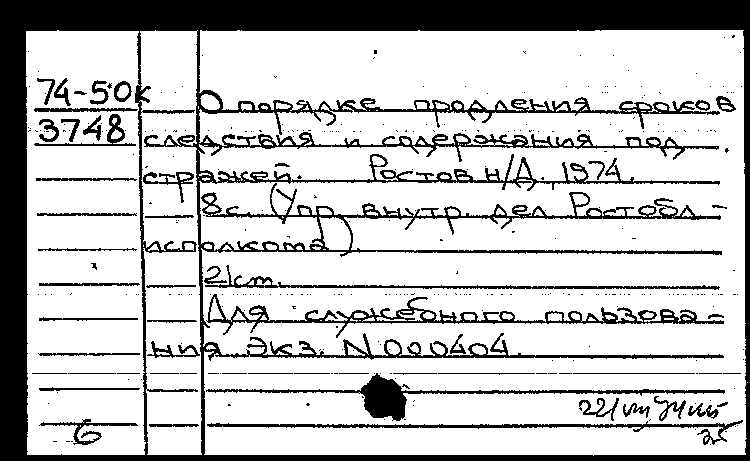 74-50к О порядке продления сроков
3748 следствия и содержания под
стражей. Ростов н/Д., 1974.
8с. (Упр. внутр. дел Ростобл-
исполкома).
21 cm.
Для служебного пользова-
ния Экз. N000404.
6